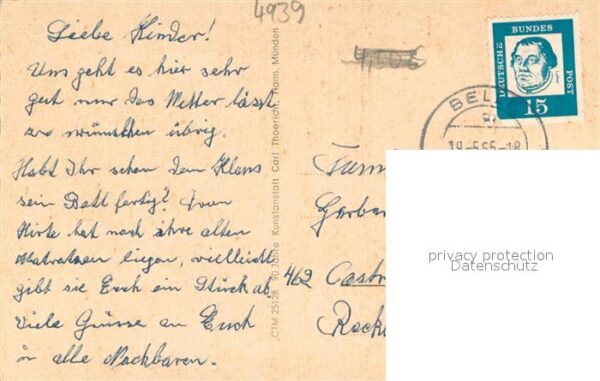 4939
Liebe Kinder!
Uns geht es hier sehr
gut nur das Wetter lässt
zu wünschen übrig.
Habt Ihr schon dem Klaus
sein Bett fertig? Frau
Hirte hat noch ihre alten
Matratzen liegen, vielleicht
gibt sie Euch ein Stück ab.
Viele Grüsse an Euch
u alle Nachbaren.
CTM 25128 90 Jahre Kunstanstalt Carl Thoericht, Hann. Münden
DEUTSCHE BUNDES POST
15
BEL
19-5.65-18
Fam
Gerber
462 Castr
Rockh
privacy protection
Datenschutz